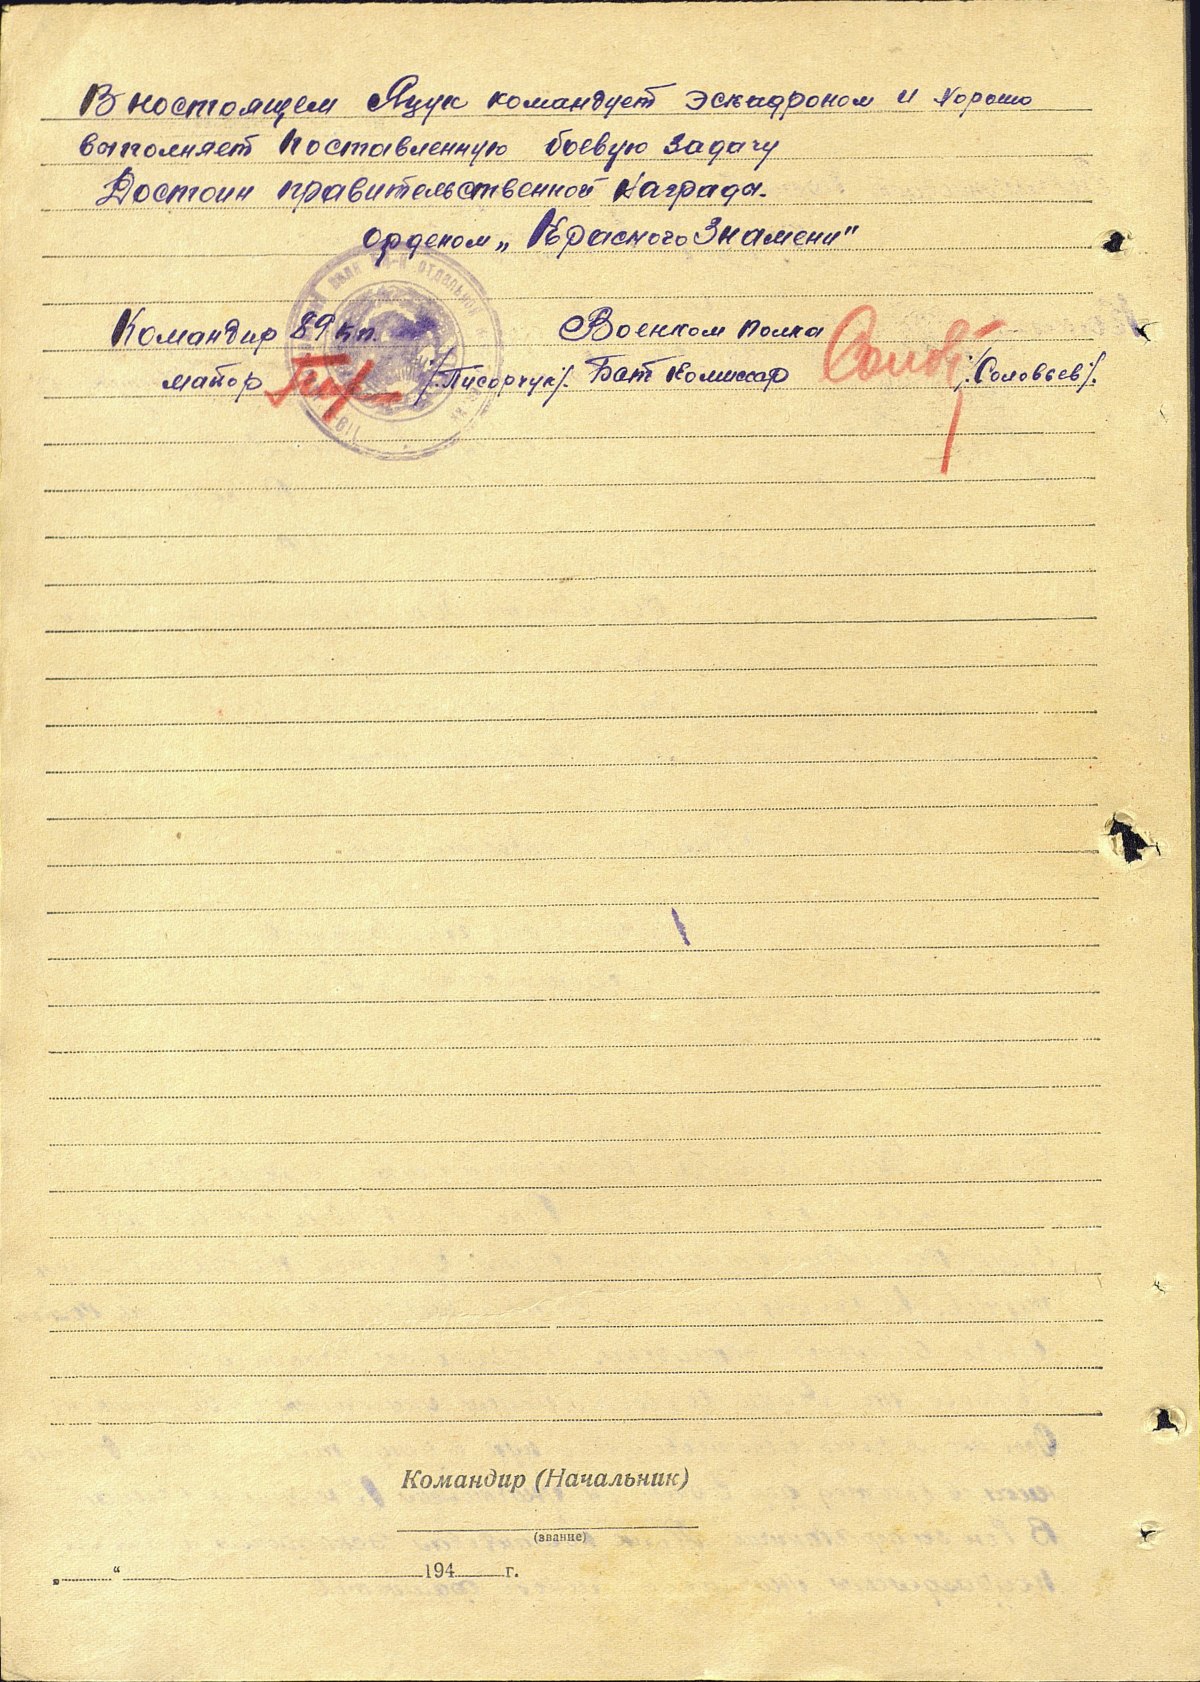 В ностоящем Яцук командует эскадроном и хорошо
выполняет поставленную боевую задачу
Достоин правительственной награда.
орденом „Красного Знамени"
Командир 89 к.п. Военком полка
майор /Писарчук/. Бат комиссар Солов /Соловьев/.
Командир (Начальник)
(звание)
„ “ 194 г.